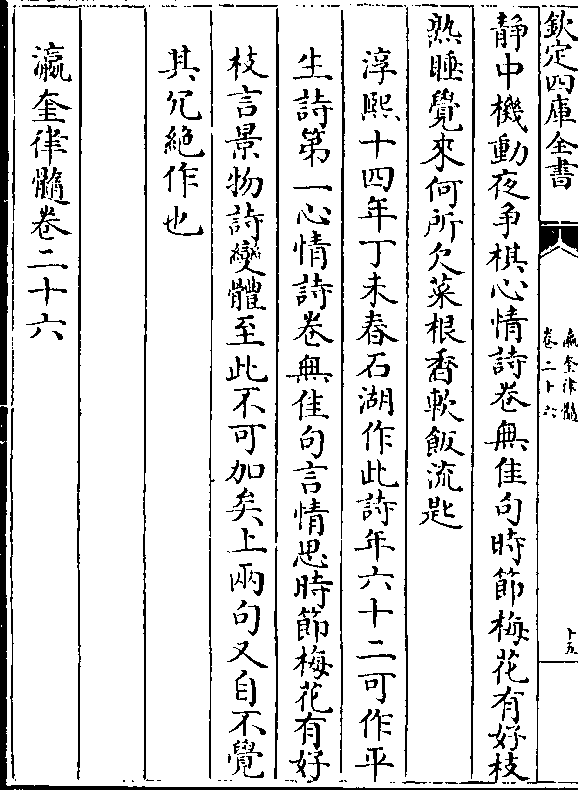 欽定四庫全書
瀛奎律髓
卷二十六
十五
靜中機動夜争棋心情詩卷無佳句時節梅花有好枝
熟睡覺來何所欠菜根香軟飯流匙
淳熙十四年丁未春石湖作此詩年六十二可作平
生詩第一心情詩卷無佳句言情思時節梅花有好
枝言景物詩變體至此不可加矣上兩句又自不覺
其冗絶作也
瀛奎律髓卷二十六